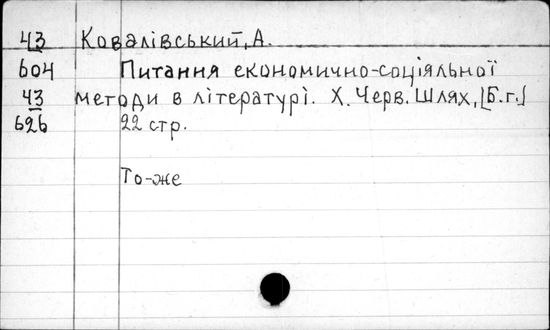 43 Ковалівський, А.
604 Питання економично-соціяльної
43 методи в літературі. Х. Черв. Шлях, [Б.г.]
626 22 стр.
То-же